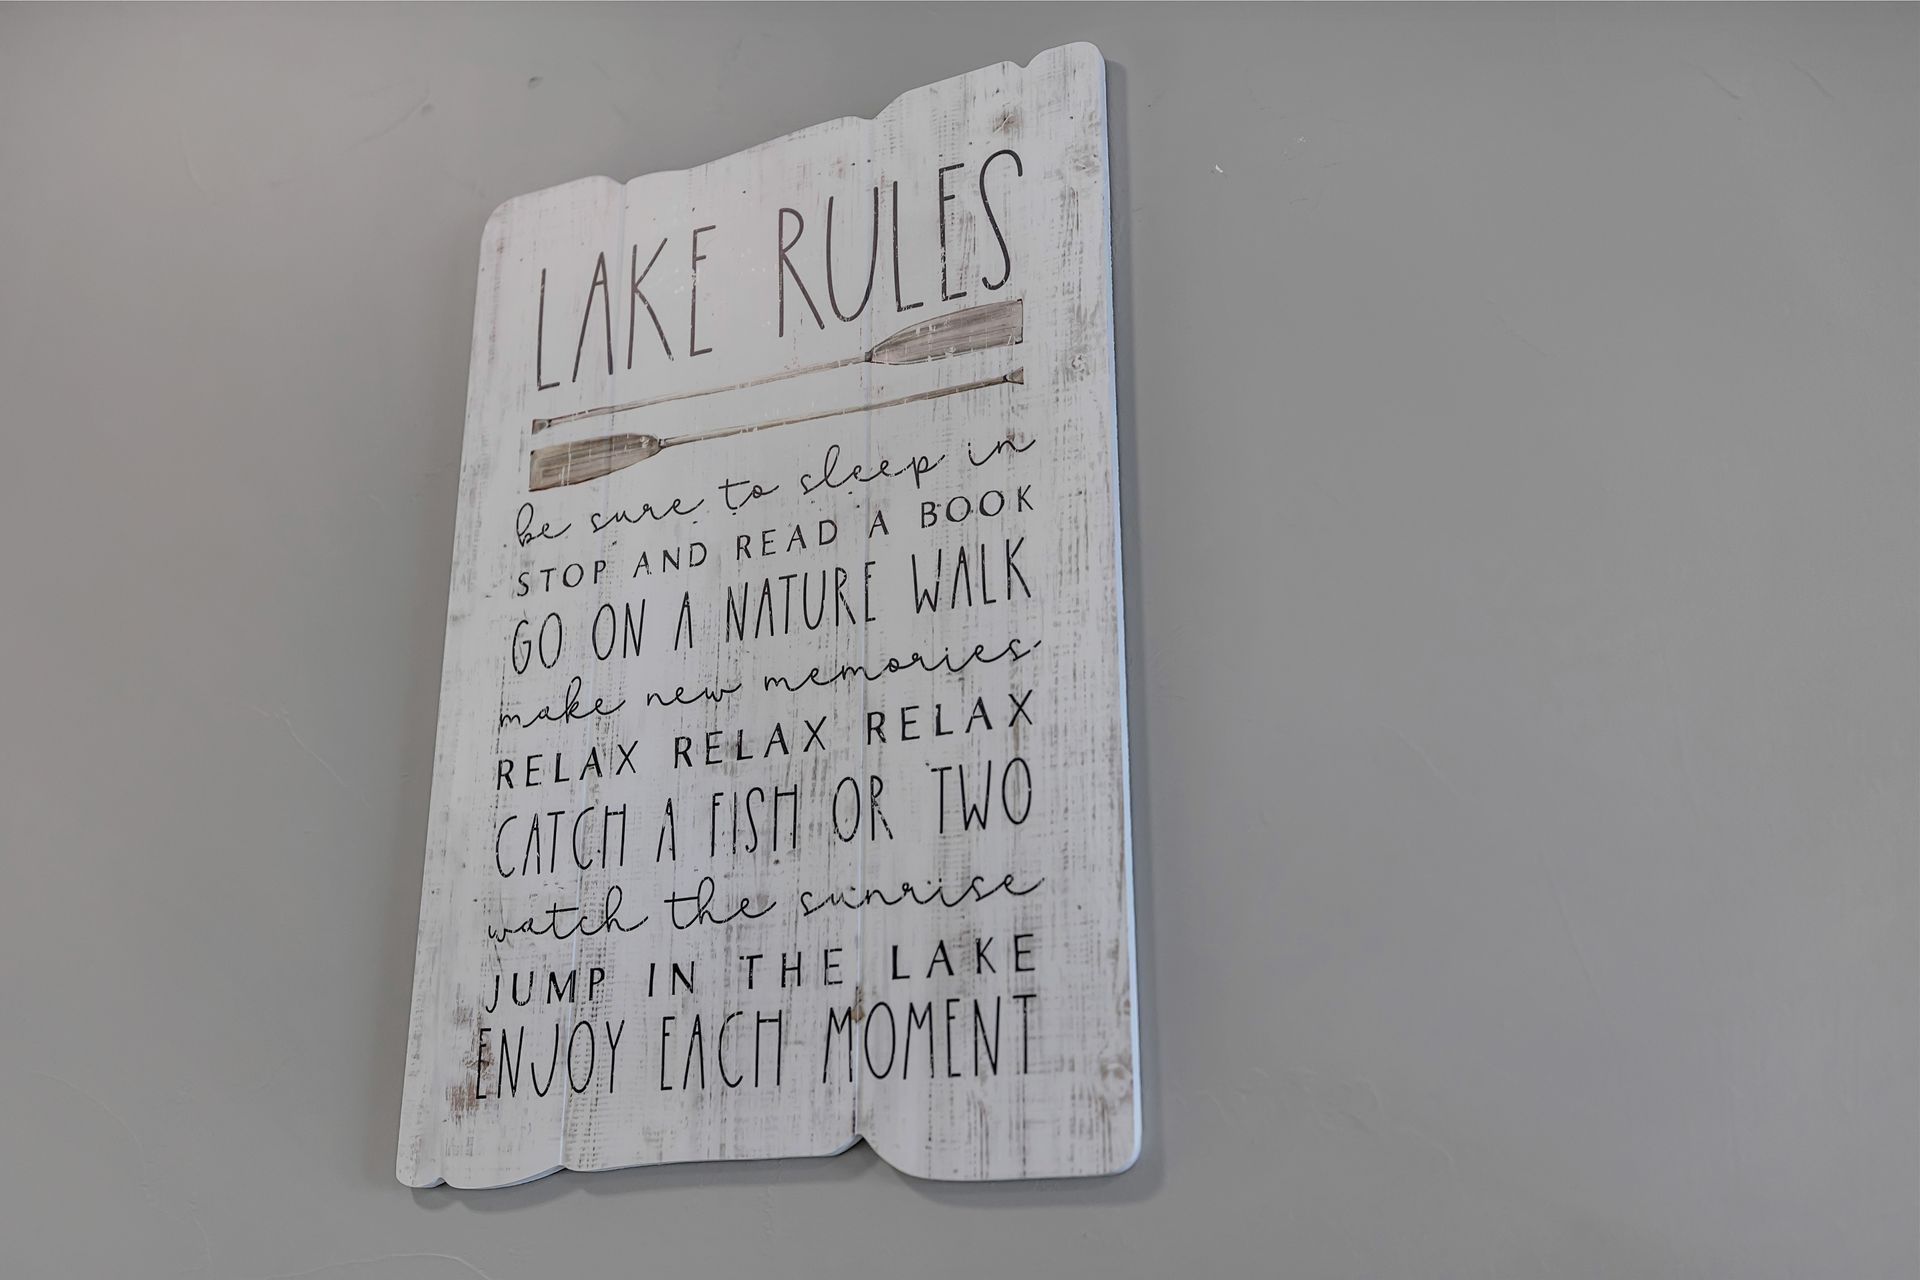 LAKE RULES
be sure to sleep in
STOP AND READ A BOOK
GO ON A NATURE WALK
make new memories
RELAX RELAX RELAX
CATCH A FISH OR TWO
watch the sunrise
JUMP IN THE LAKE
ENJOY EACH MOMENT